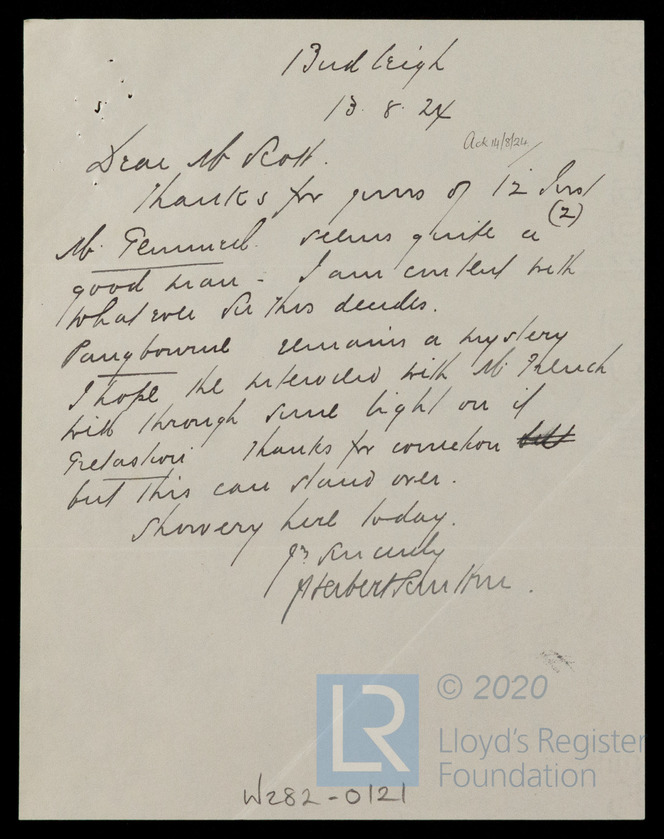 Budleigh
13. 8. 24
Ack 14/8/24
Dear Mr Scott.
Thanks for yours of 12 Inst
(2)
Mr. Gemmell. seems quite a
good man - I am content with
whatever Sir Thos decides.
Pangbourne remains a mystery
I hope the interview with Mr French
will through some light on it
Thanks for correction
but this can stand over.
Showery here today.
Yrs sincerely
Herbert
© 2020
LR
Lloyd's Register
Foundation
W282-0121